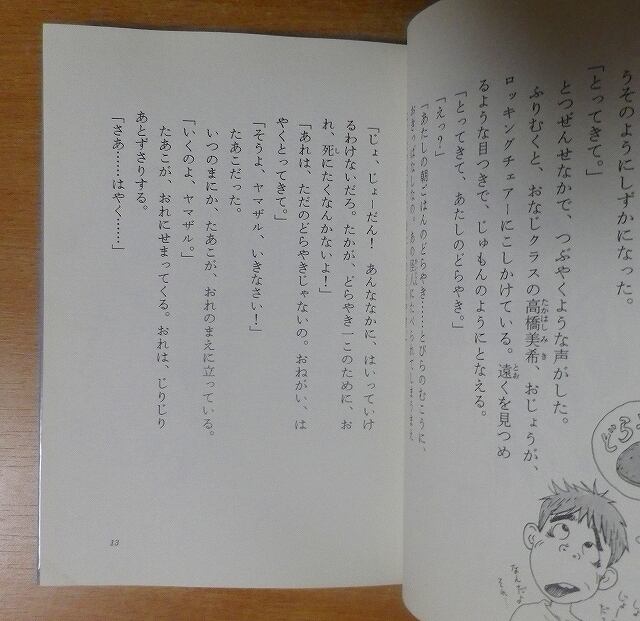 うそのようにしずかになった。
「とってきて。」
とつぜんせなかで、つぶやくような声がした。
ふりむくと、おなじクラスの高橋美希、おじょうが、
ロッキングチェアーにこしかけている。遠くを見つめ
るような目つきで、じゅもんのようにとなえる。
「とってきて、あたしのどらやき。」
「えっ？」
「あたしの朝ごはんのどらやき……とびらのむこうに、
「じょ、じょーだん！　あんななかに、はいっていけ
るわけないだろ。たかが、どらやき一このために、お
れ、死にたくなんかないよ！」
「あれは、ただのどらやきじゃないの。おねがい、は
やくとってきて。」
「そうよ、ヤマザル、いきなさい！」
たあこだった。
いつのまにか、たあこが、おれのまえに立っている。
「いくのよ、ヤマザル。」
たあこが、おれにせまってくる。おれは、じりじり
あとずさりする。
「さあ……はやく……」
13